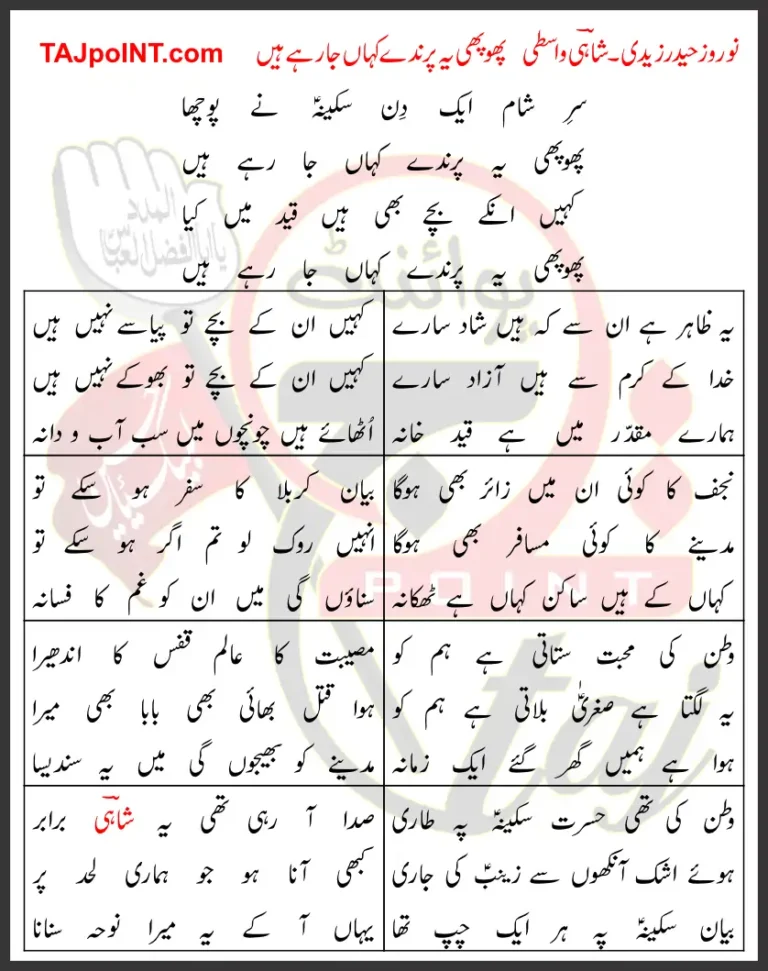 نوروز حیدر زیدی۔شاہیؔ واسطی   پھوپھی یہ پرندے کہاں جا رہے ہیں   TAJpoINT.com
سرِ شام ایک دِن سکینہؑ نے پوچھا
پھوپھی یہ پرندے کہاں جا رہے ہیں
کہیں انکے بچے بھی ہیں قید میں کیا
پھوپھی یہ پرندے کہاں جا رہے ہیں
یہ ظاہر ہے ان سے کہ ہیں شاد سارے
خدا کے کرم سے ہیں آزاد سارے
ہمارے مقدّر میں ہے قید خانہ
کہیں ان کے بچے تو پیاسے نہیں ہیں
کہیں ان کے بچے تو بھوکے نہیں ہیں
اُٹھائے ہیں چونچوں میں سب آب و دانہ
نجف کا کوئی ان میں زائر بھی ہوگا
مدینے کا کوئی مسافر بھی ہوگا
کہاں کے ہیں ساکن کہاں ہے ٹھکانہ
بیان کربلا کا سفر ہو سکے تو
انہیں روک لو تم اگر ہو سکے تو
سناؤں گی میں ان کو غم کا فسانہ
وطن کی محبت ستاتی ہے ہم کو
یہ لگتا ہے صغریٰؑ بلاتی ہے ہم کو
ہوا ہے ہمیں گھر گئے ایک زمانہ
مصیبت کا عالم قفس کا اندھیرا
ہوا قتل بھائی بھی بابا بھی میرا
مدینے کو بھیجوں گی میں یہ سندیسا
وطن کی تھی حسرت سکینہؑ پہ طاری
ہوئے اشک آنکھوں سے زینبؑ کی جاری
بیان سکینہؑ پہ ہر ایک چپ تھا
صدا آ رہی تھی یہ شاہیؔ برابر
کبھی آنا ہو جو ہماری لحد پر
یہاں آ کے یہ میرا نوحہ سنانا
المدد
یا ابالفضل العباس
پوائنٹ
POINT
taj